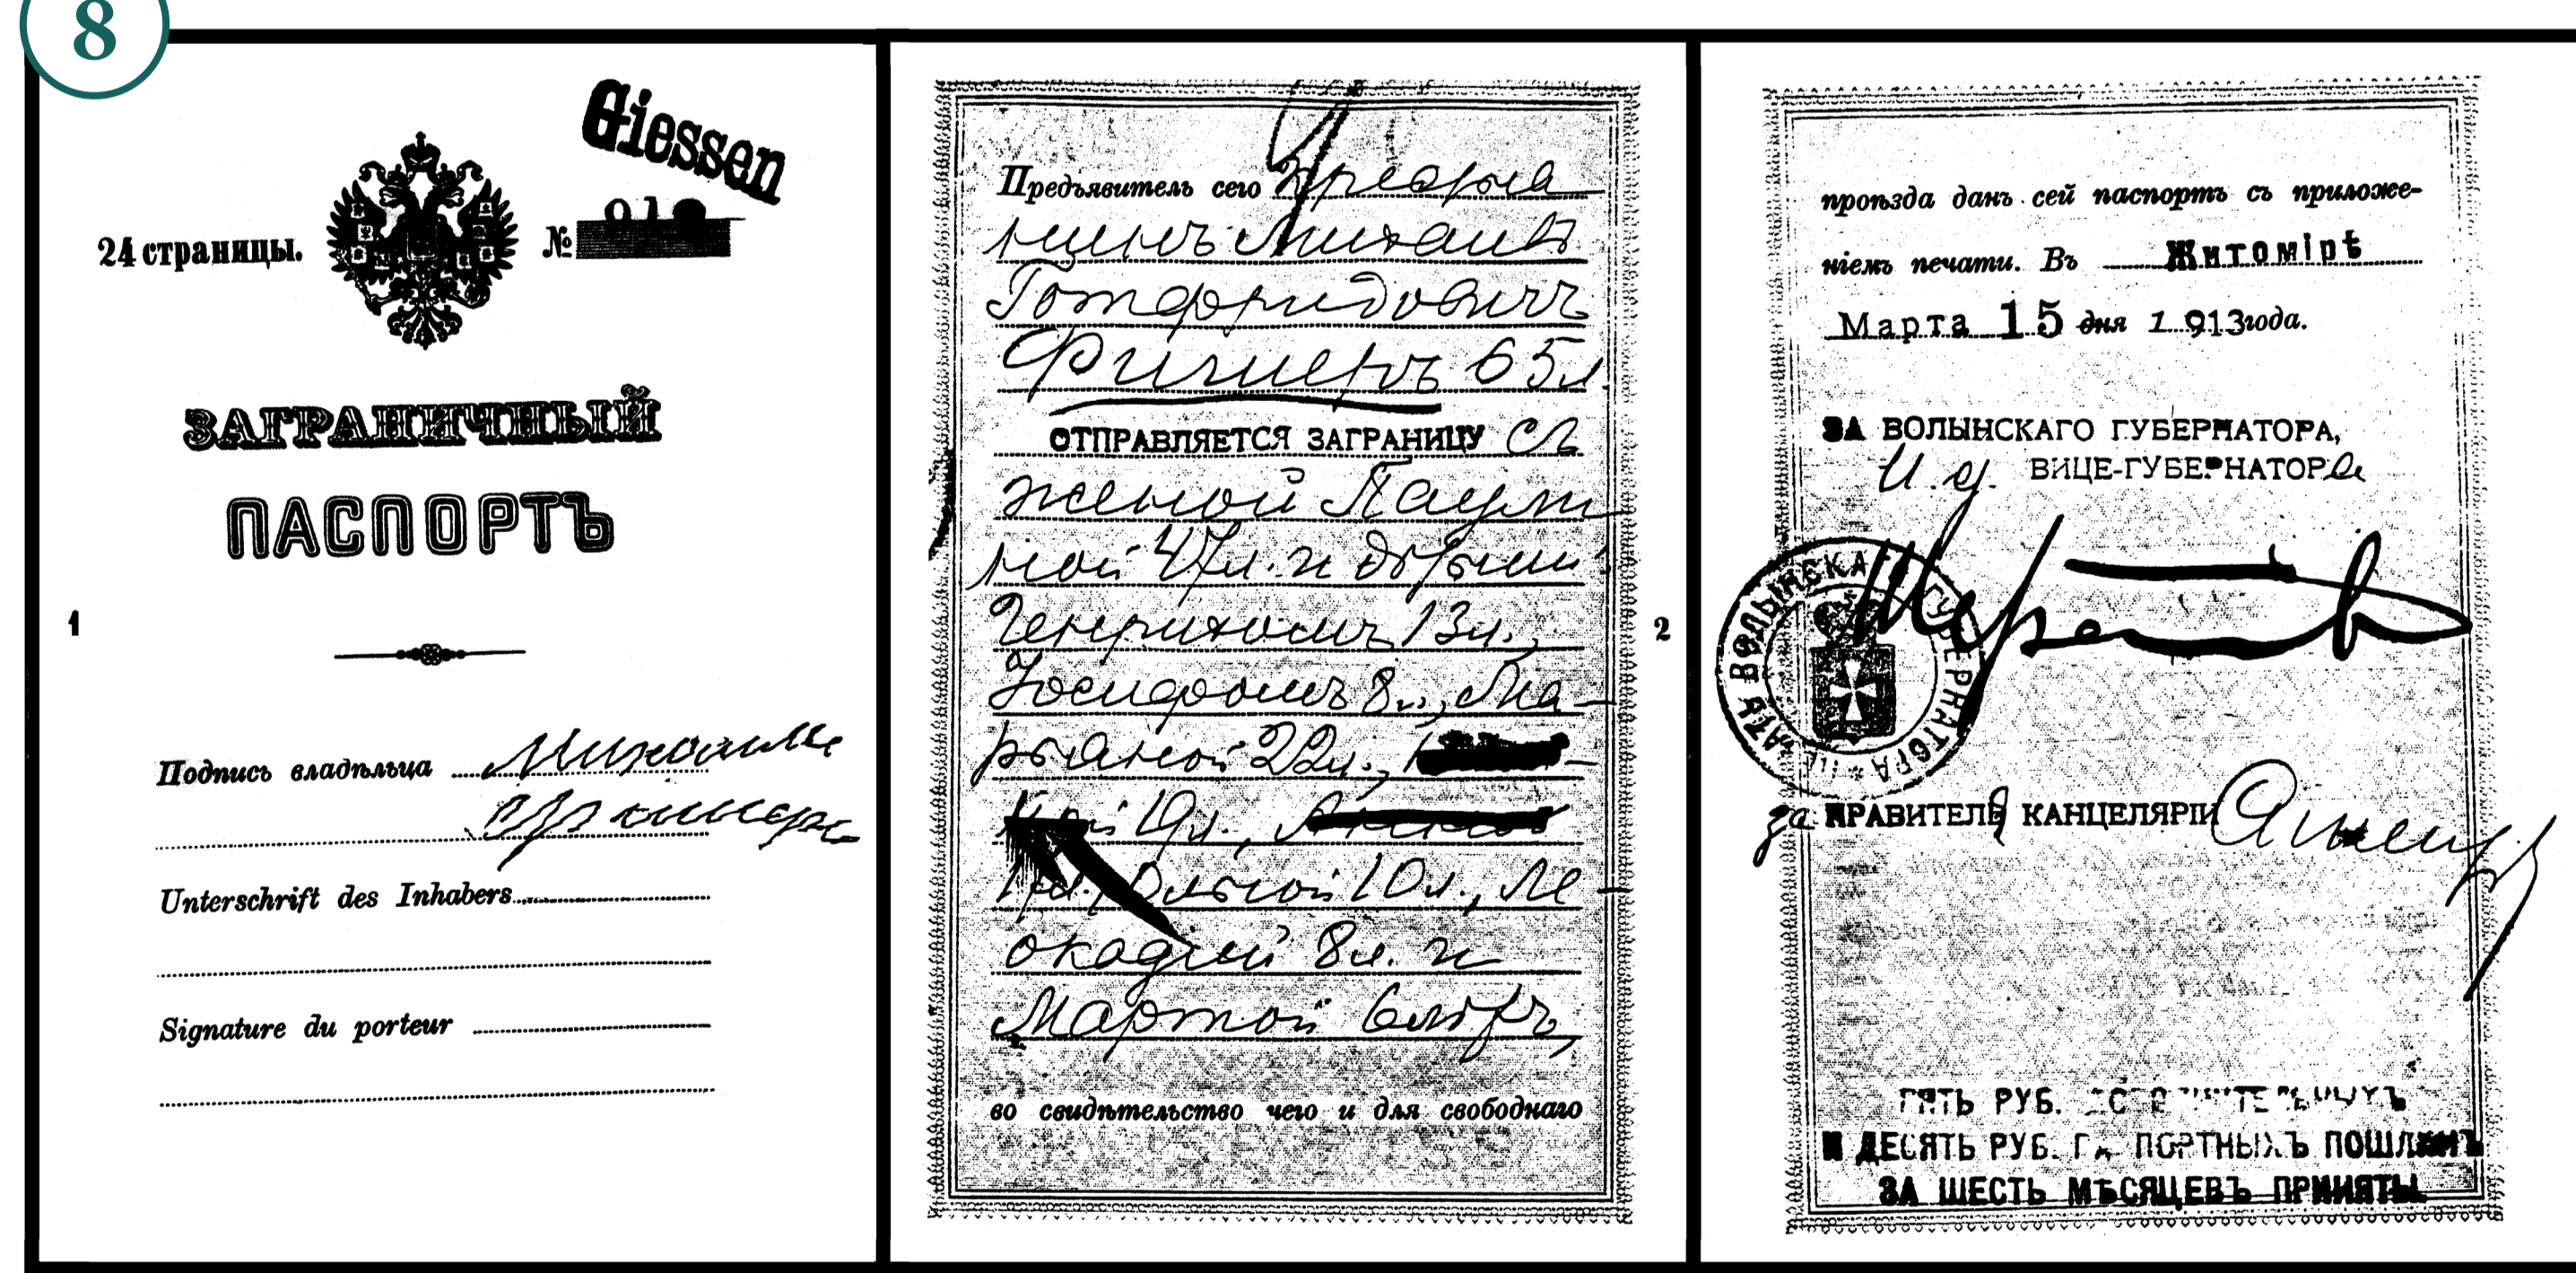 8
Giessen
24 страницы.
№
ЗАГРАНИЧНЫЙ
ПАСПОРТЪ
1
Подпись владѣльца Михаилъ
Unterschrift des Inhabers
Signature du porteur
Предъявитель сего Крестья
нинъ Михаилъ
Готфридовичъ
Фишеръ 65 л.
ОТПРАВЛЯЕТСЯ ЗАГРАНИЦУ съ
женой Паули
ной 47 л. и дѣтьми
Генрихомъ 13 л.,
Іосифомъ 8 л., Ма-
рьяной 22 л.,
19 л.,
Ольгой 10 л., Ле-
окадіей 8 л. и
Мартой 6 лѣтъ,
во свидѣтельство чего и для свободнаго
2
проѣзда данъ сей паспортъ съ приложе-
ніемъ печати. Въ Житомірѣ
Марта 15 дня 1913 года.
ЗА ВОЛЫНСКАГО ГУБЕРНАТОРА,
И. д. ВИЦЕ-ГУБЕРНАТОРА
ПЕЧАТЬ ВОЛЫНСКАГО ГУБЕРНАТОРА
за ПРАВИТЕЛЯ КАНЦЕЛЯРІИ
ПЯТЬ РУБ.
И ДЕСЯТЬ РУБ. ПАСПОРТНЫХЪ ПОШЛИНЪ
ЗА ШЕСТЬ МѢСЯЦЕВЪ ПРИНЯТЫ.